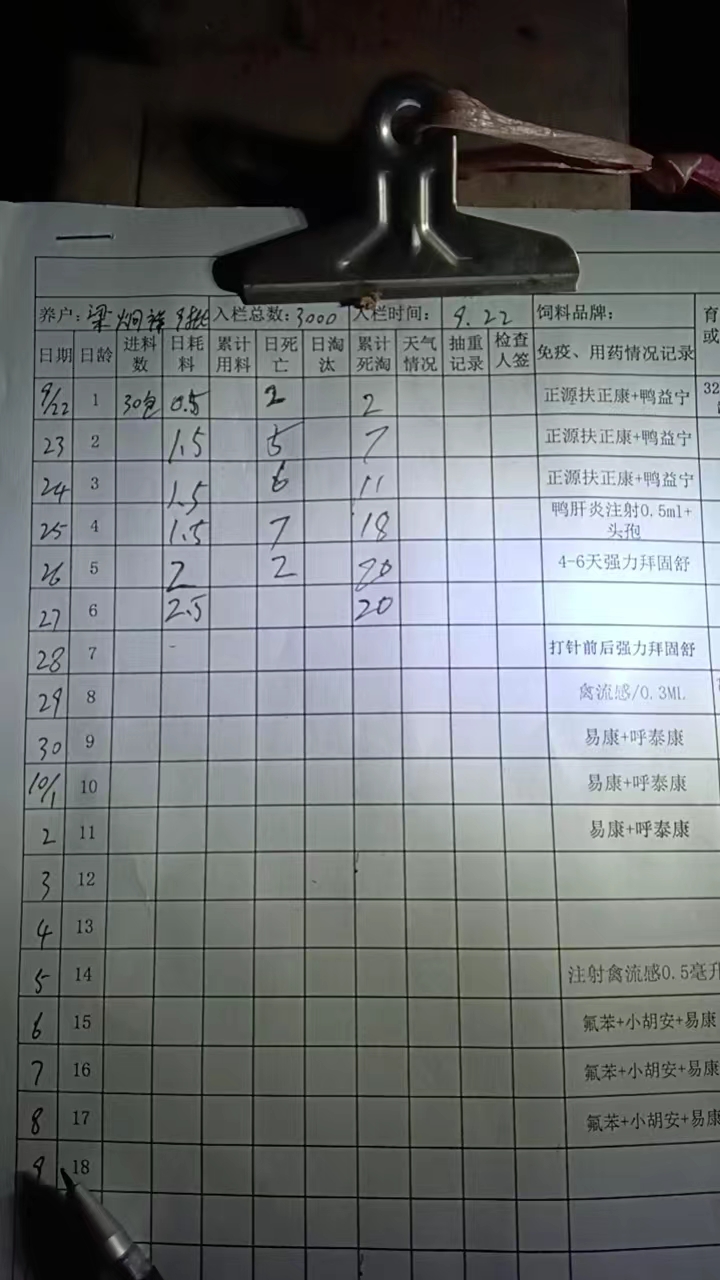 养户: 梁炯祥 9批 入栏总数: 3000 入栏时间: 9.22 饲料品牌: 育
日期 日龄 进料数 日耗料 累计用料 日死亡 日淘汰 累计死淘 天气情况 抽重记录 检查人签 免疫、用药情况记录 或
9/22 1 30包 0.5 2 2 正源扶正康+鸭益宁 32
23 2 1.5 5 7 正源扶正康+鸭益宁
24 3 1.5 6 11 正源扶正康+鸭益宁
25 4 1.5 7 18 鸭肝炎注射0.5ml+头孢
26 5 2 2 20 4-6天强力拜固舒
27 6 2.5 20
28 7 打针前后强力拜固舒
29 8 禽流感/0.3ML
30 9 易康+呼泰康
10/1 10 易康+呼泰康
2 11 易康+呼泰康
3 12
4 13
5 14 注射禽流感0.5毫升
6 15 氟苯+小胡安+易康
7 16 氟苯+小胡安+易康
8 17 氟苯+小胡安+易康
9 18